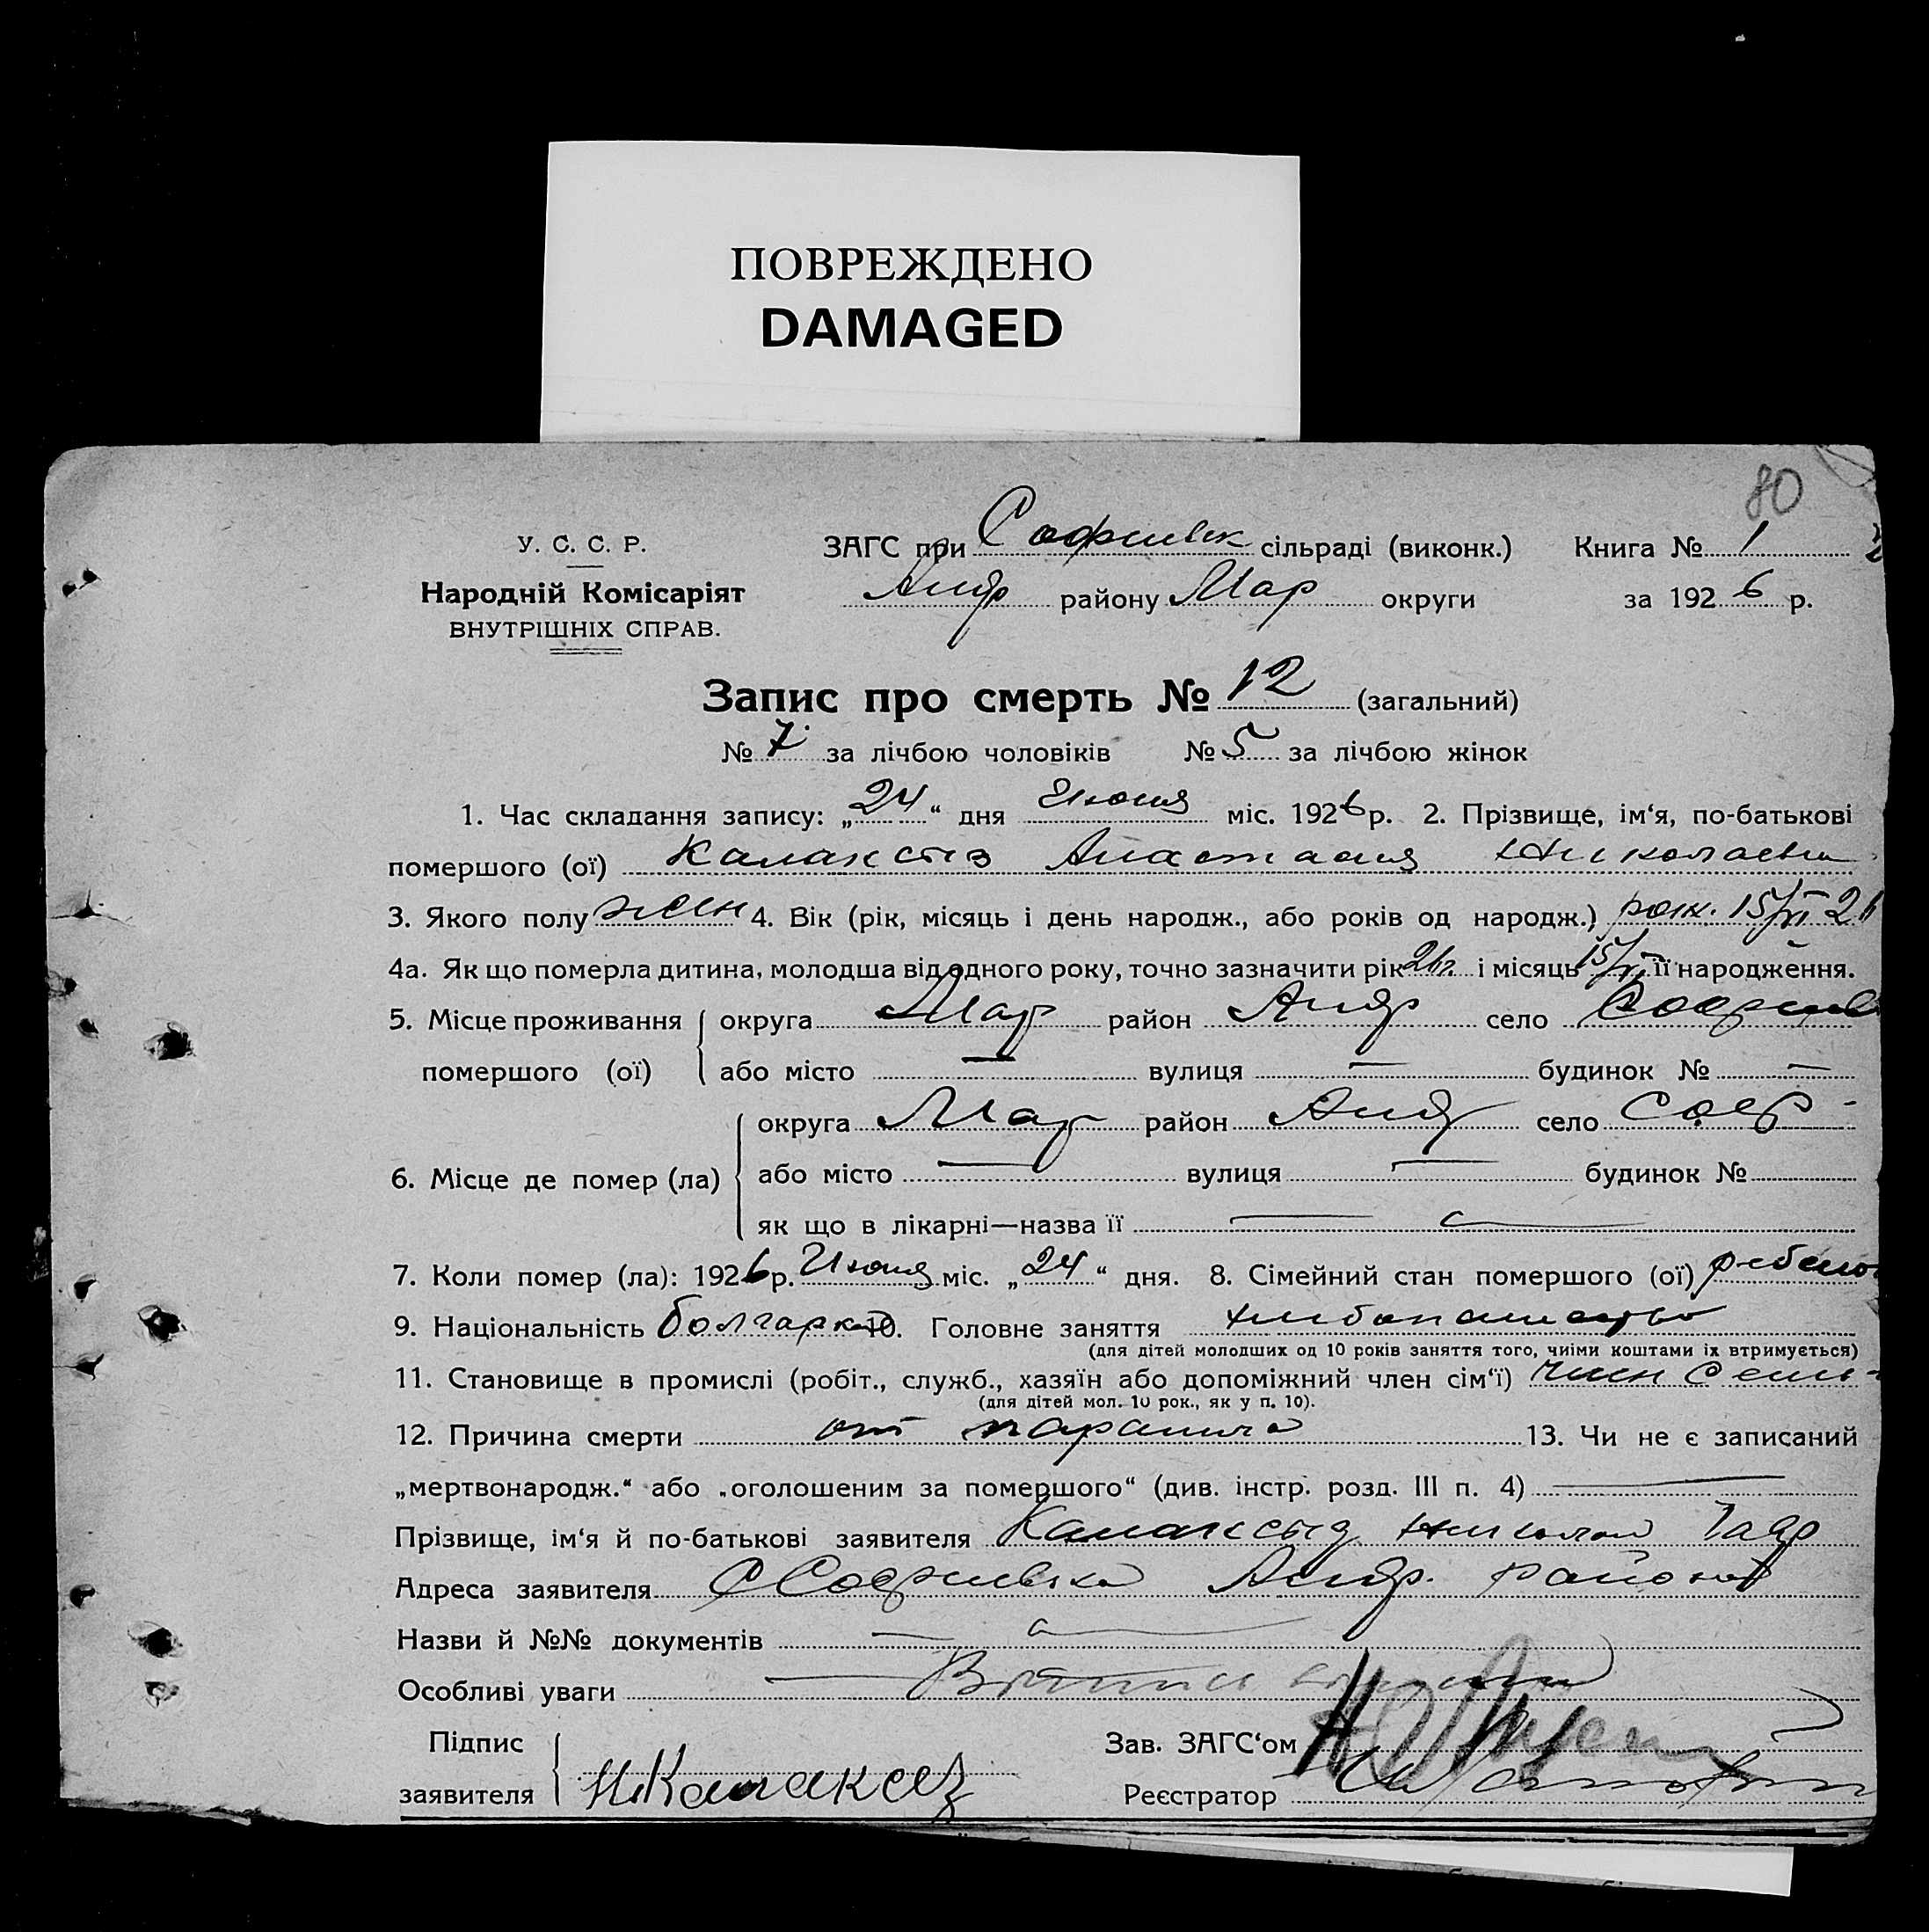 ПОВРЕЖДЕНО
DAMAGED
80
У. С. С. Р.
ЗАГС при Софиевк сільраді (виконк.) Книга № 1
Народній Комісаріят
Андр району Мар округи за 1926 р.
ВНУТРІШНІХ СПРАВ.
Запис про смерть № 12 (загальний)
№ 7 за лічбою чоловіків № 5 за лічбою жінок
1. Час складання запису: „24“ дня Июня міс. 1926 р. 2. Прізвище, ім‘я, по-батькові
помершого (ої) Анастасия Николаевна
3. Якого полу жен 4. Вік (рік, місяць і день народж., або років од народж.) рож. 15/VI 26
4а. Як що померла дитина, молодша від одного року, точно зазначити рік 26 г. і місяць 15/VI її народження.
5. Місце проживання округа Мар район Андр село Софиев
помершого (ої) або місто — вулиця — будинок № —
округа Мар район Андр село Соф -
6. Місце де помер (ла) або місто — вулиця — будинок №
як що в лікарні—назва її —
7. Коли помер (ла): 1926 р. Июня міс. „24“ дня. 8. Сімейний стан помершого (ої) ребено
9. Національність болгарка 10. Головне заняття хлебопашество
(для дітей молодших од 10 років заняття того, чиїми коштами їх втримується)
11. Становище в промислі (робіт., служб., хазяїн або допоміжний член сім‘ї) член семьи
(для дітей мол. 10 рок., як у п. 10).
12. Причина смерти от паралича 13. Чи не є записаний
„мертвонародж.“ або „оголошеним за помершого“ (див. інстр. розд. III п. 4) —
Прізвище, ім‘я й по-батькові заявителя Николай
Адреса заявителя С Софиевка Андр. района
Назви й №№ документів —
Особливі уваги —
Підпис
Зав. ЗАГС‘ом
заявителя
Реєстратор